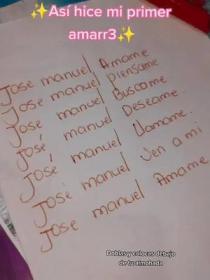 ✨Así hice mi primer
amarr3✨
Jose manuel Amame
Jose manuel piensame
José manuel Buscame
José manuel Deseame
José manuel Llamame
José manuel Ven a mi
Jose manuel Amame
Doblas y colocas debajo
de tu almohada